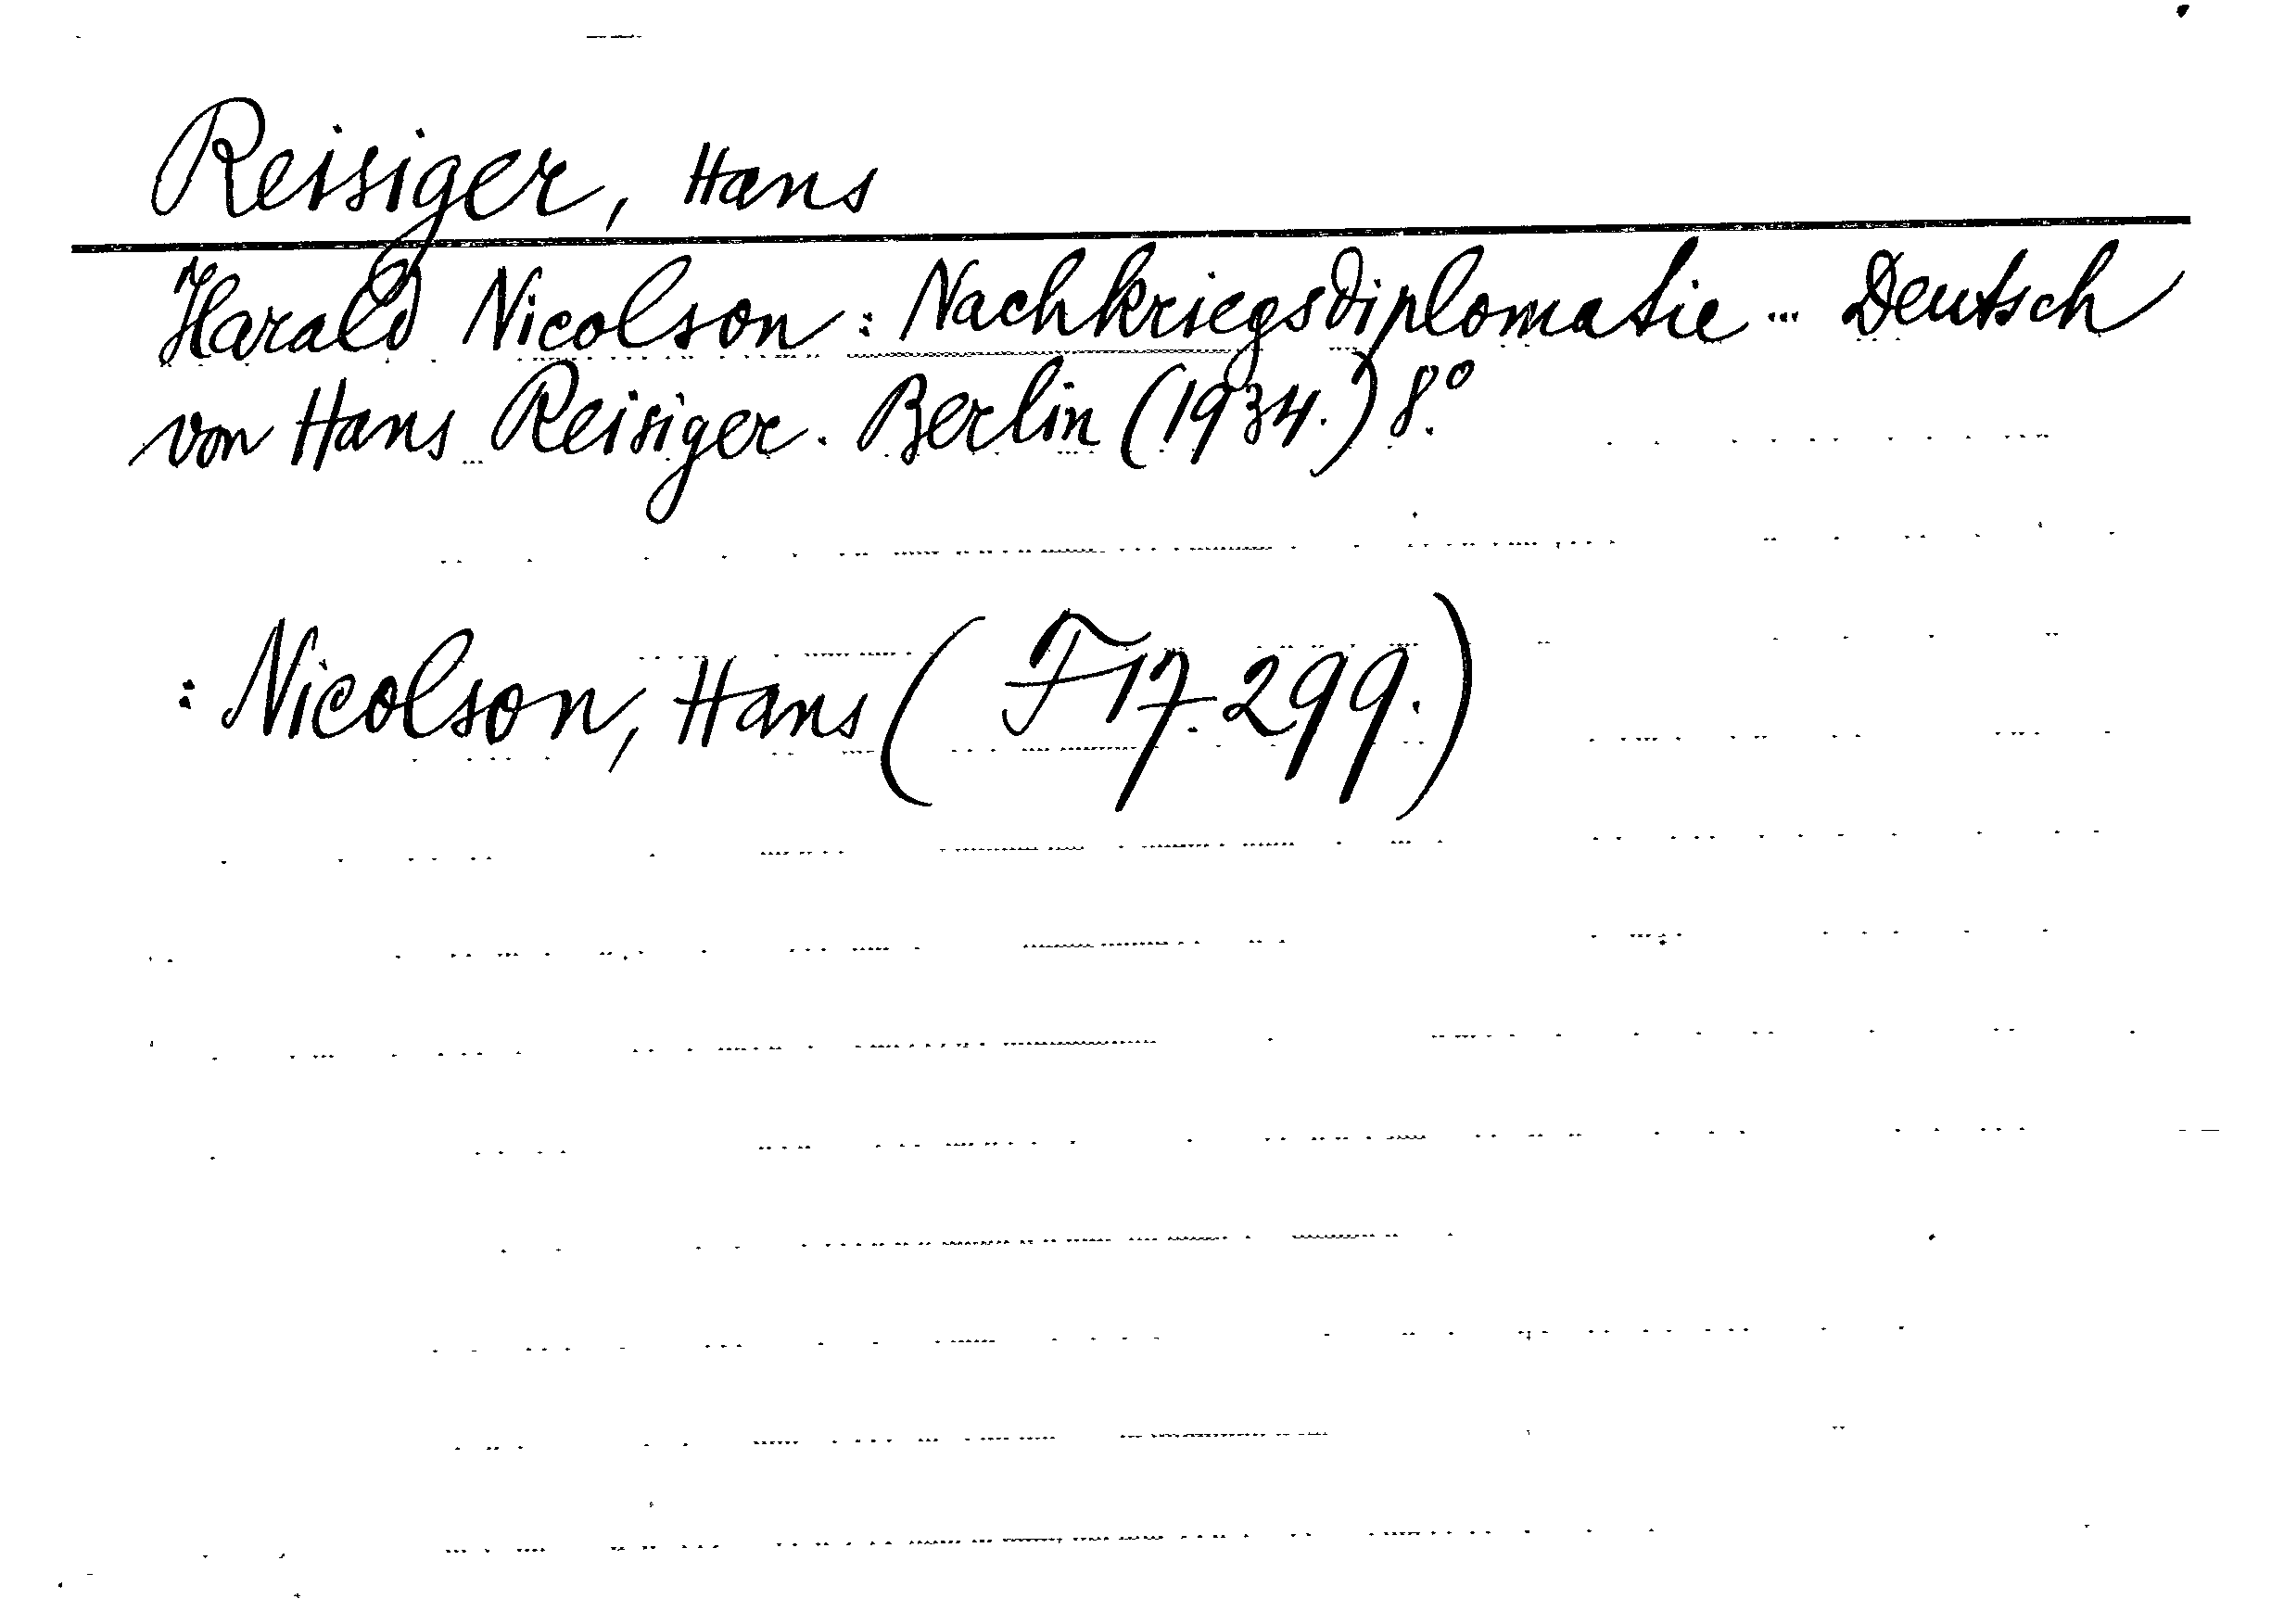 Reisiger, Hans
Harald Nicolson: Nachkriegsdiplomatie... Deutsch
von Hans Reisiger. Berlin (1934.) 8°.
: Nicolson, Hans (F 17.299.)